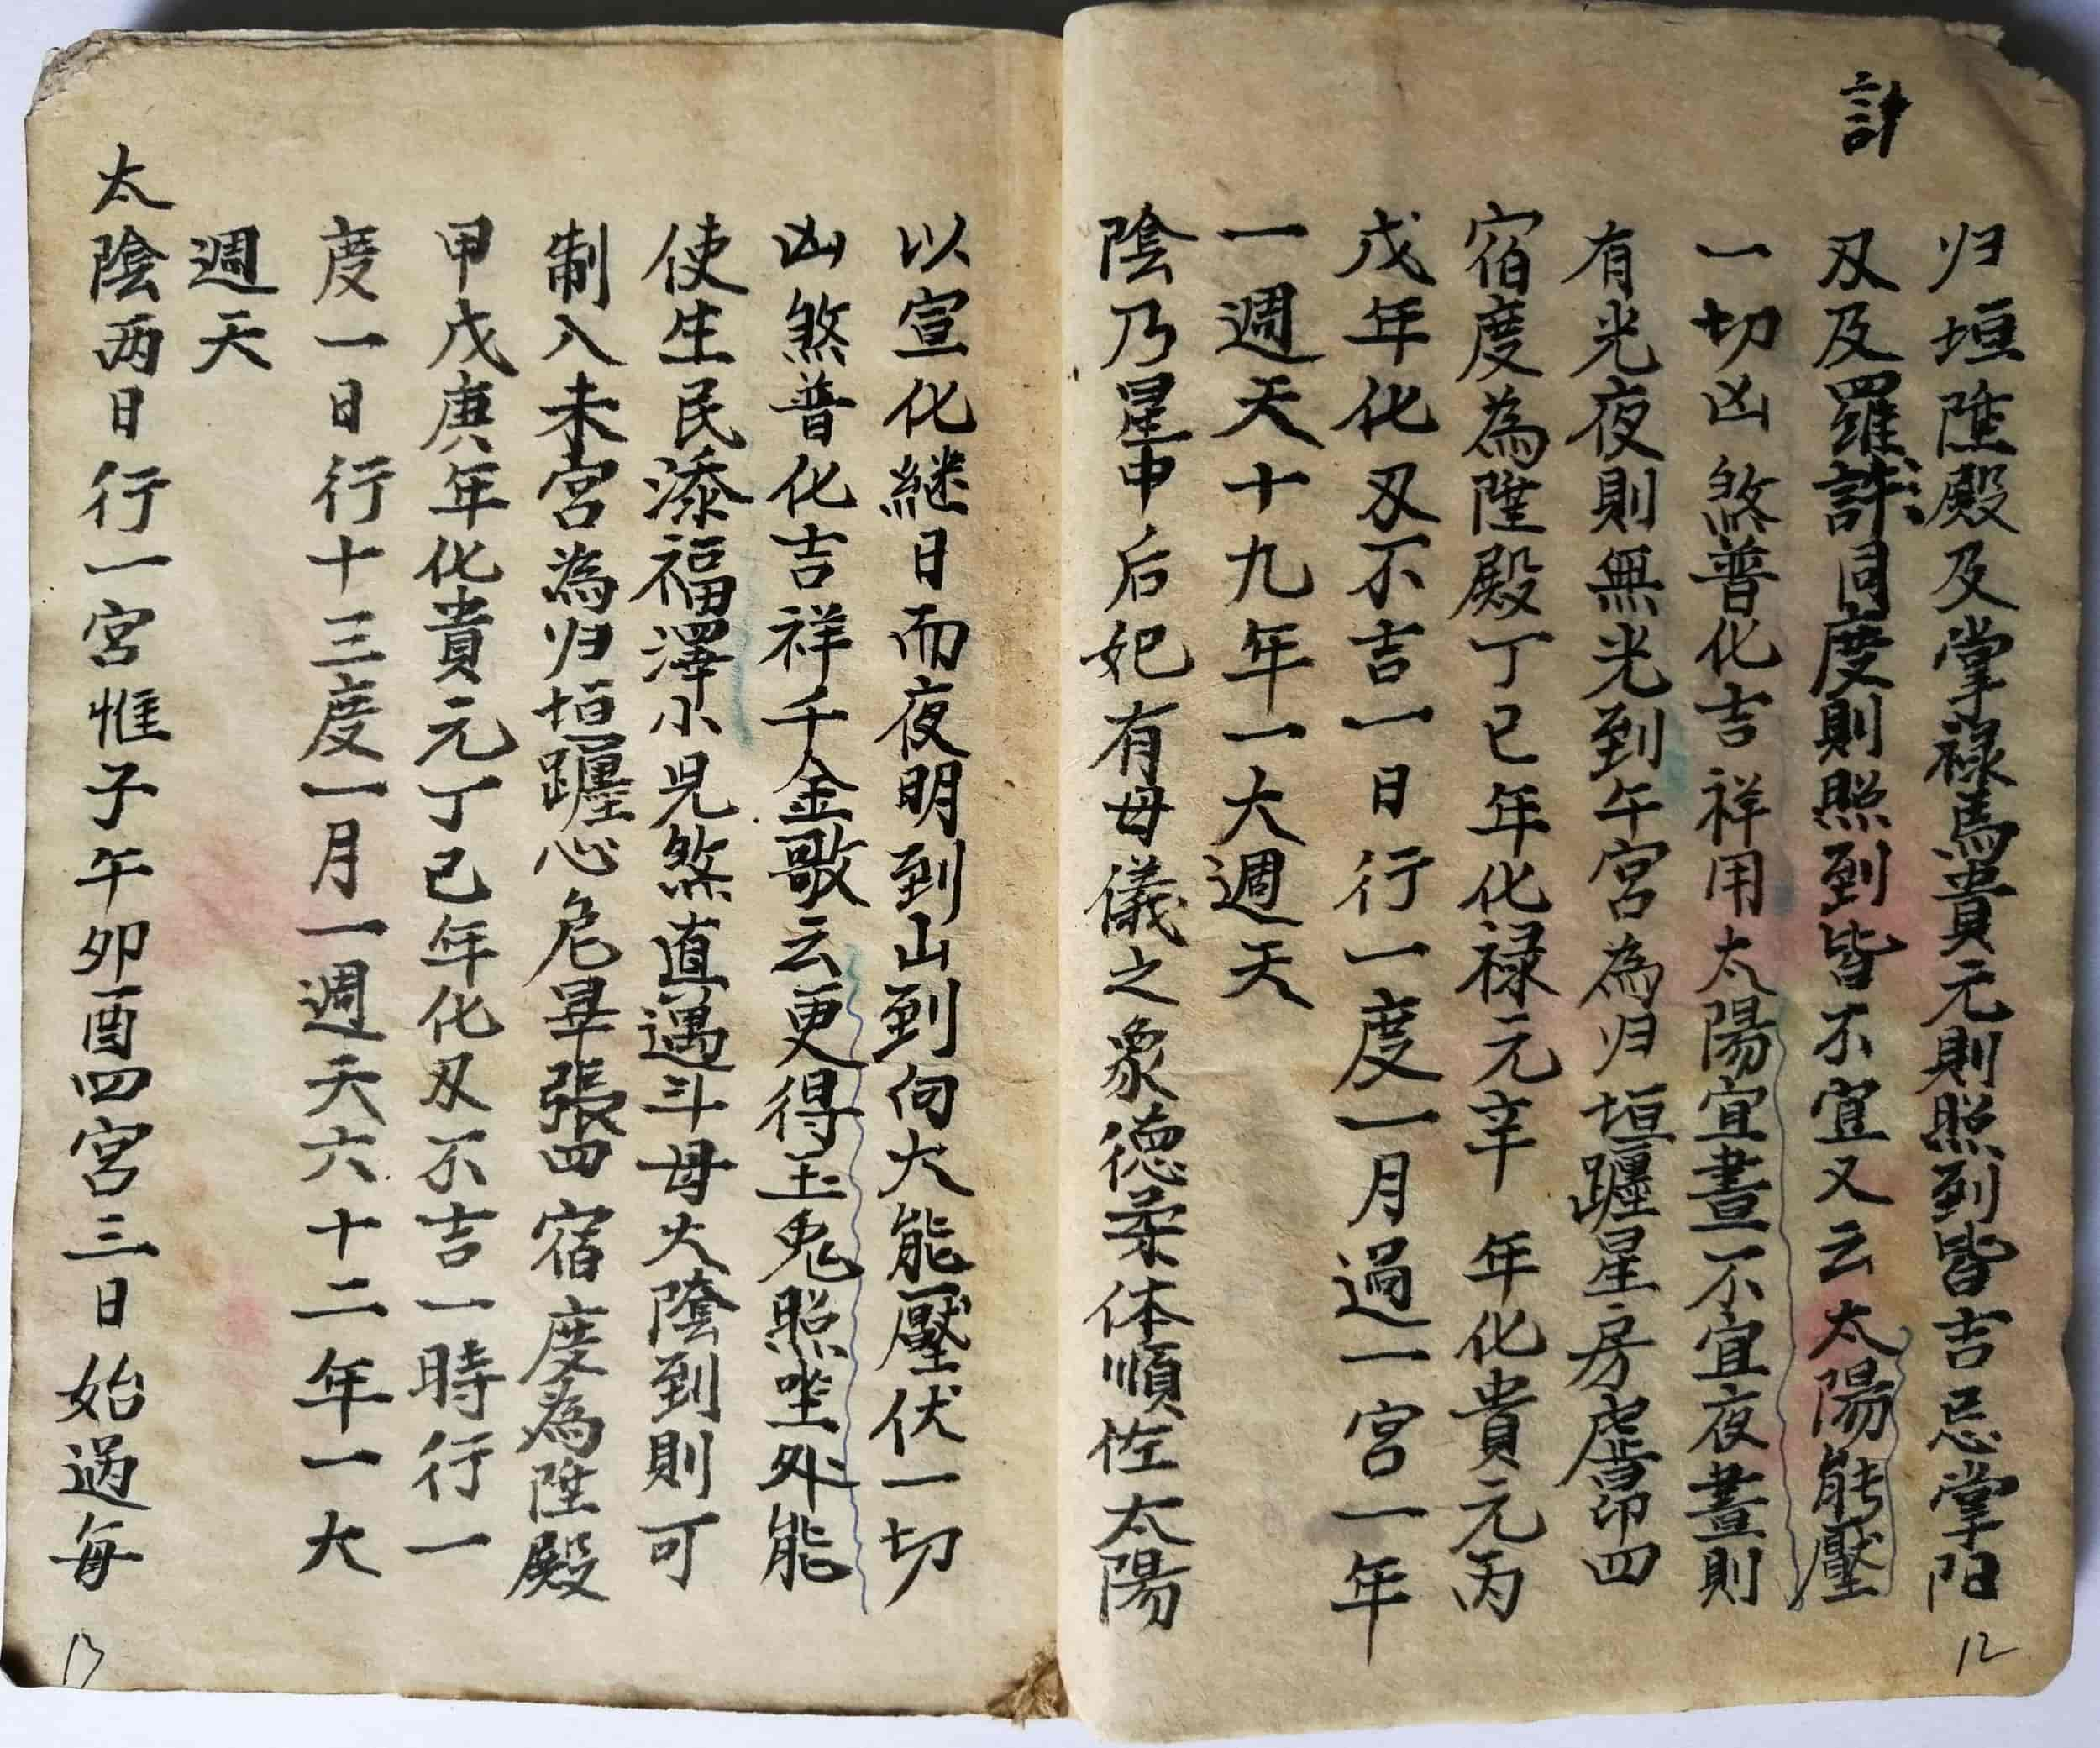 計
归垣陞殿及掌禄馬貴元則照到皆吉忌掌阳
刄及羅許同度則照到皆不宜又云太陽能壓
一切凶煞普化吉祥用太陽宜晝不宜夜晝則
有光夜則無光到午宮為归垣躔星房虛昴四
宿度為陞殿丁已年化禄元辛年化貴元丙
戊年化刄不吉一日行一度一月過一宮一年
一週天十九年一大週天
陰乃星中后妃有母儀之象德柔体順佐太陽
以宣化継日而夜明到山到向大能壓伏一切
凶煞普化吉祥千金歌云更得玉兎照坐外能
使生民添福澤小児煞直遇斗母太陰到則可
制入未宮為归垣躔心危畢張四宿度為陞殿
甲戊庚年化貴元丁己年化刄不吉一時行一
度一日行十三度一月一週天六十二年一大
週天
太陰两日行一宮惟子午卯酉四宮三日始過每
12
13